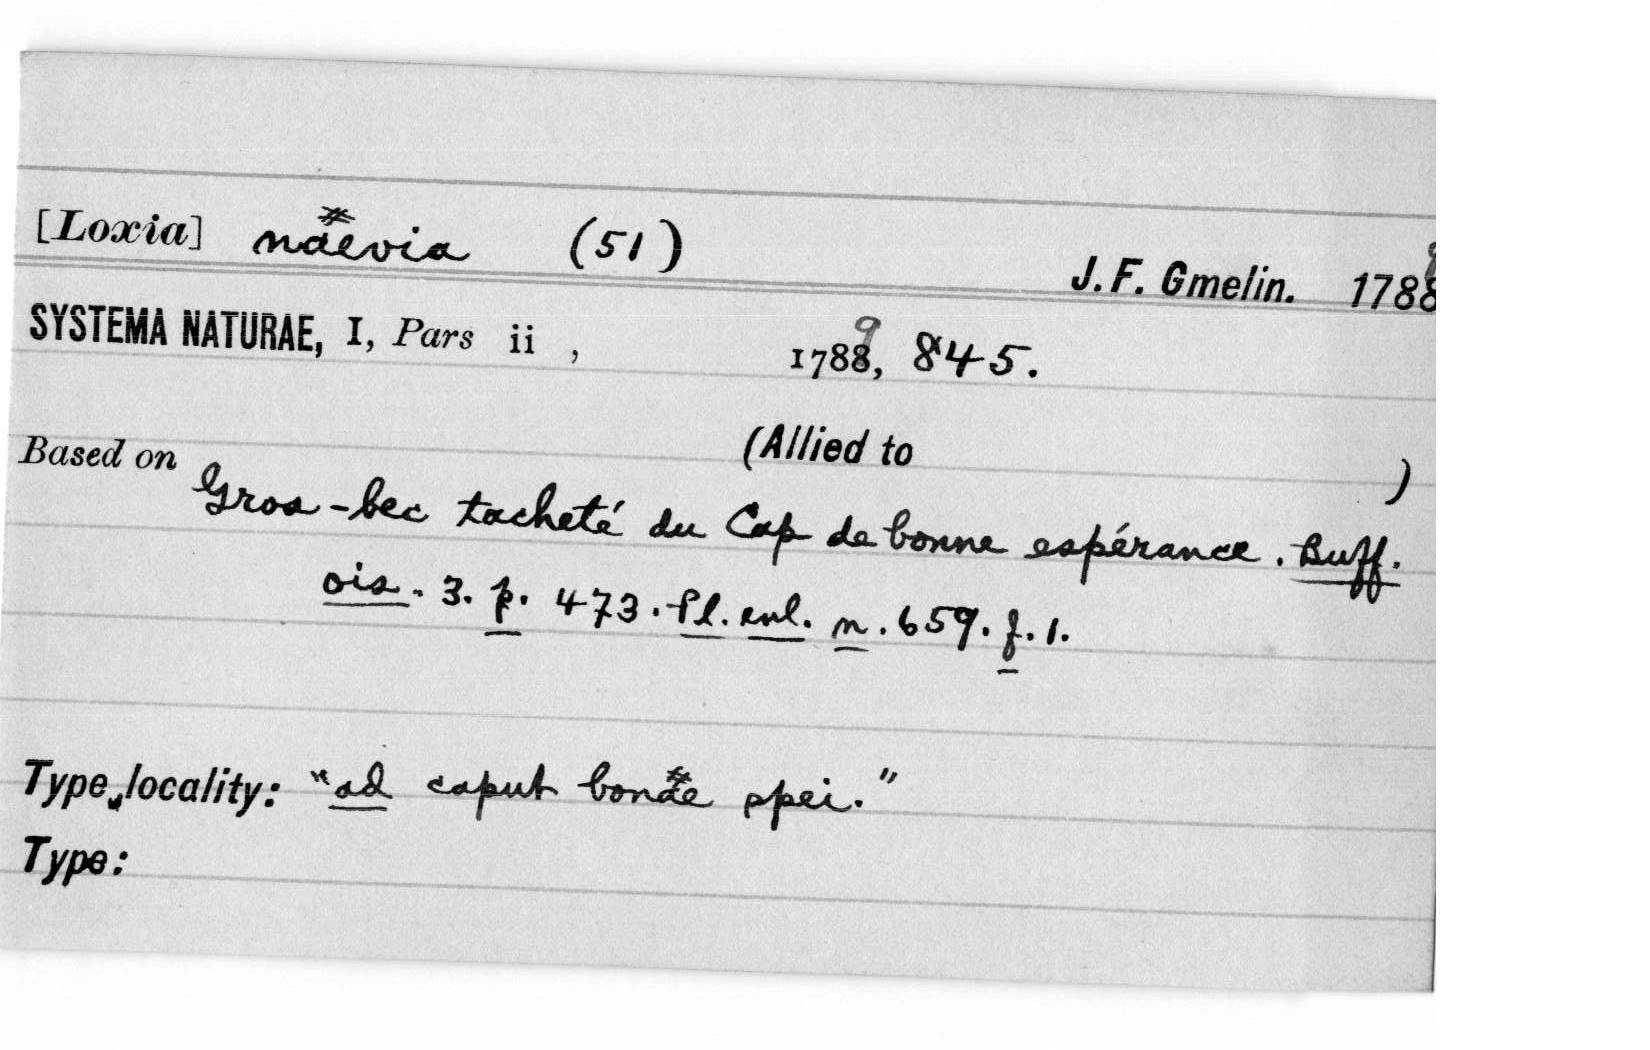 [Loxia] naevia (51)
J. F. Gmelin. 1788 9
SYSTEMA NATURAE, I, Pars ii , 1788 9, 845.
Based on (Allied to )
Gros-bec tacheté du Cap de bonne espérance. Buff.
ois. 3. p. 473. Pl. enl. n. 659. f. 1.
Type locality: "ad caput bonae spei."
Type: